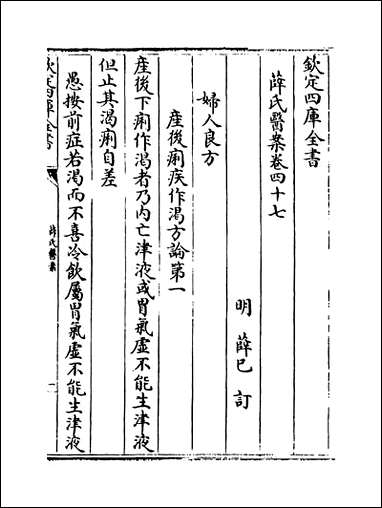 欽定四庫全書
薛氏醫案卷四十七
明 薛已 訂
婦人良方
産後痢疾作渇方論第一
産後下痢作渇者乃内亡津液或胃氣虛不能生津液
但止其渇痢自差
愚按前症若渇而不喜冷飲屬胃氣虛不能生津液
欽定四庫全書
薛氏醫案